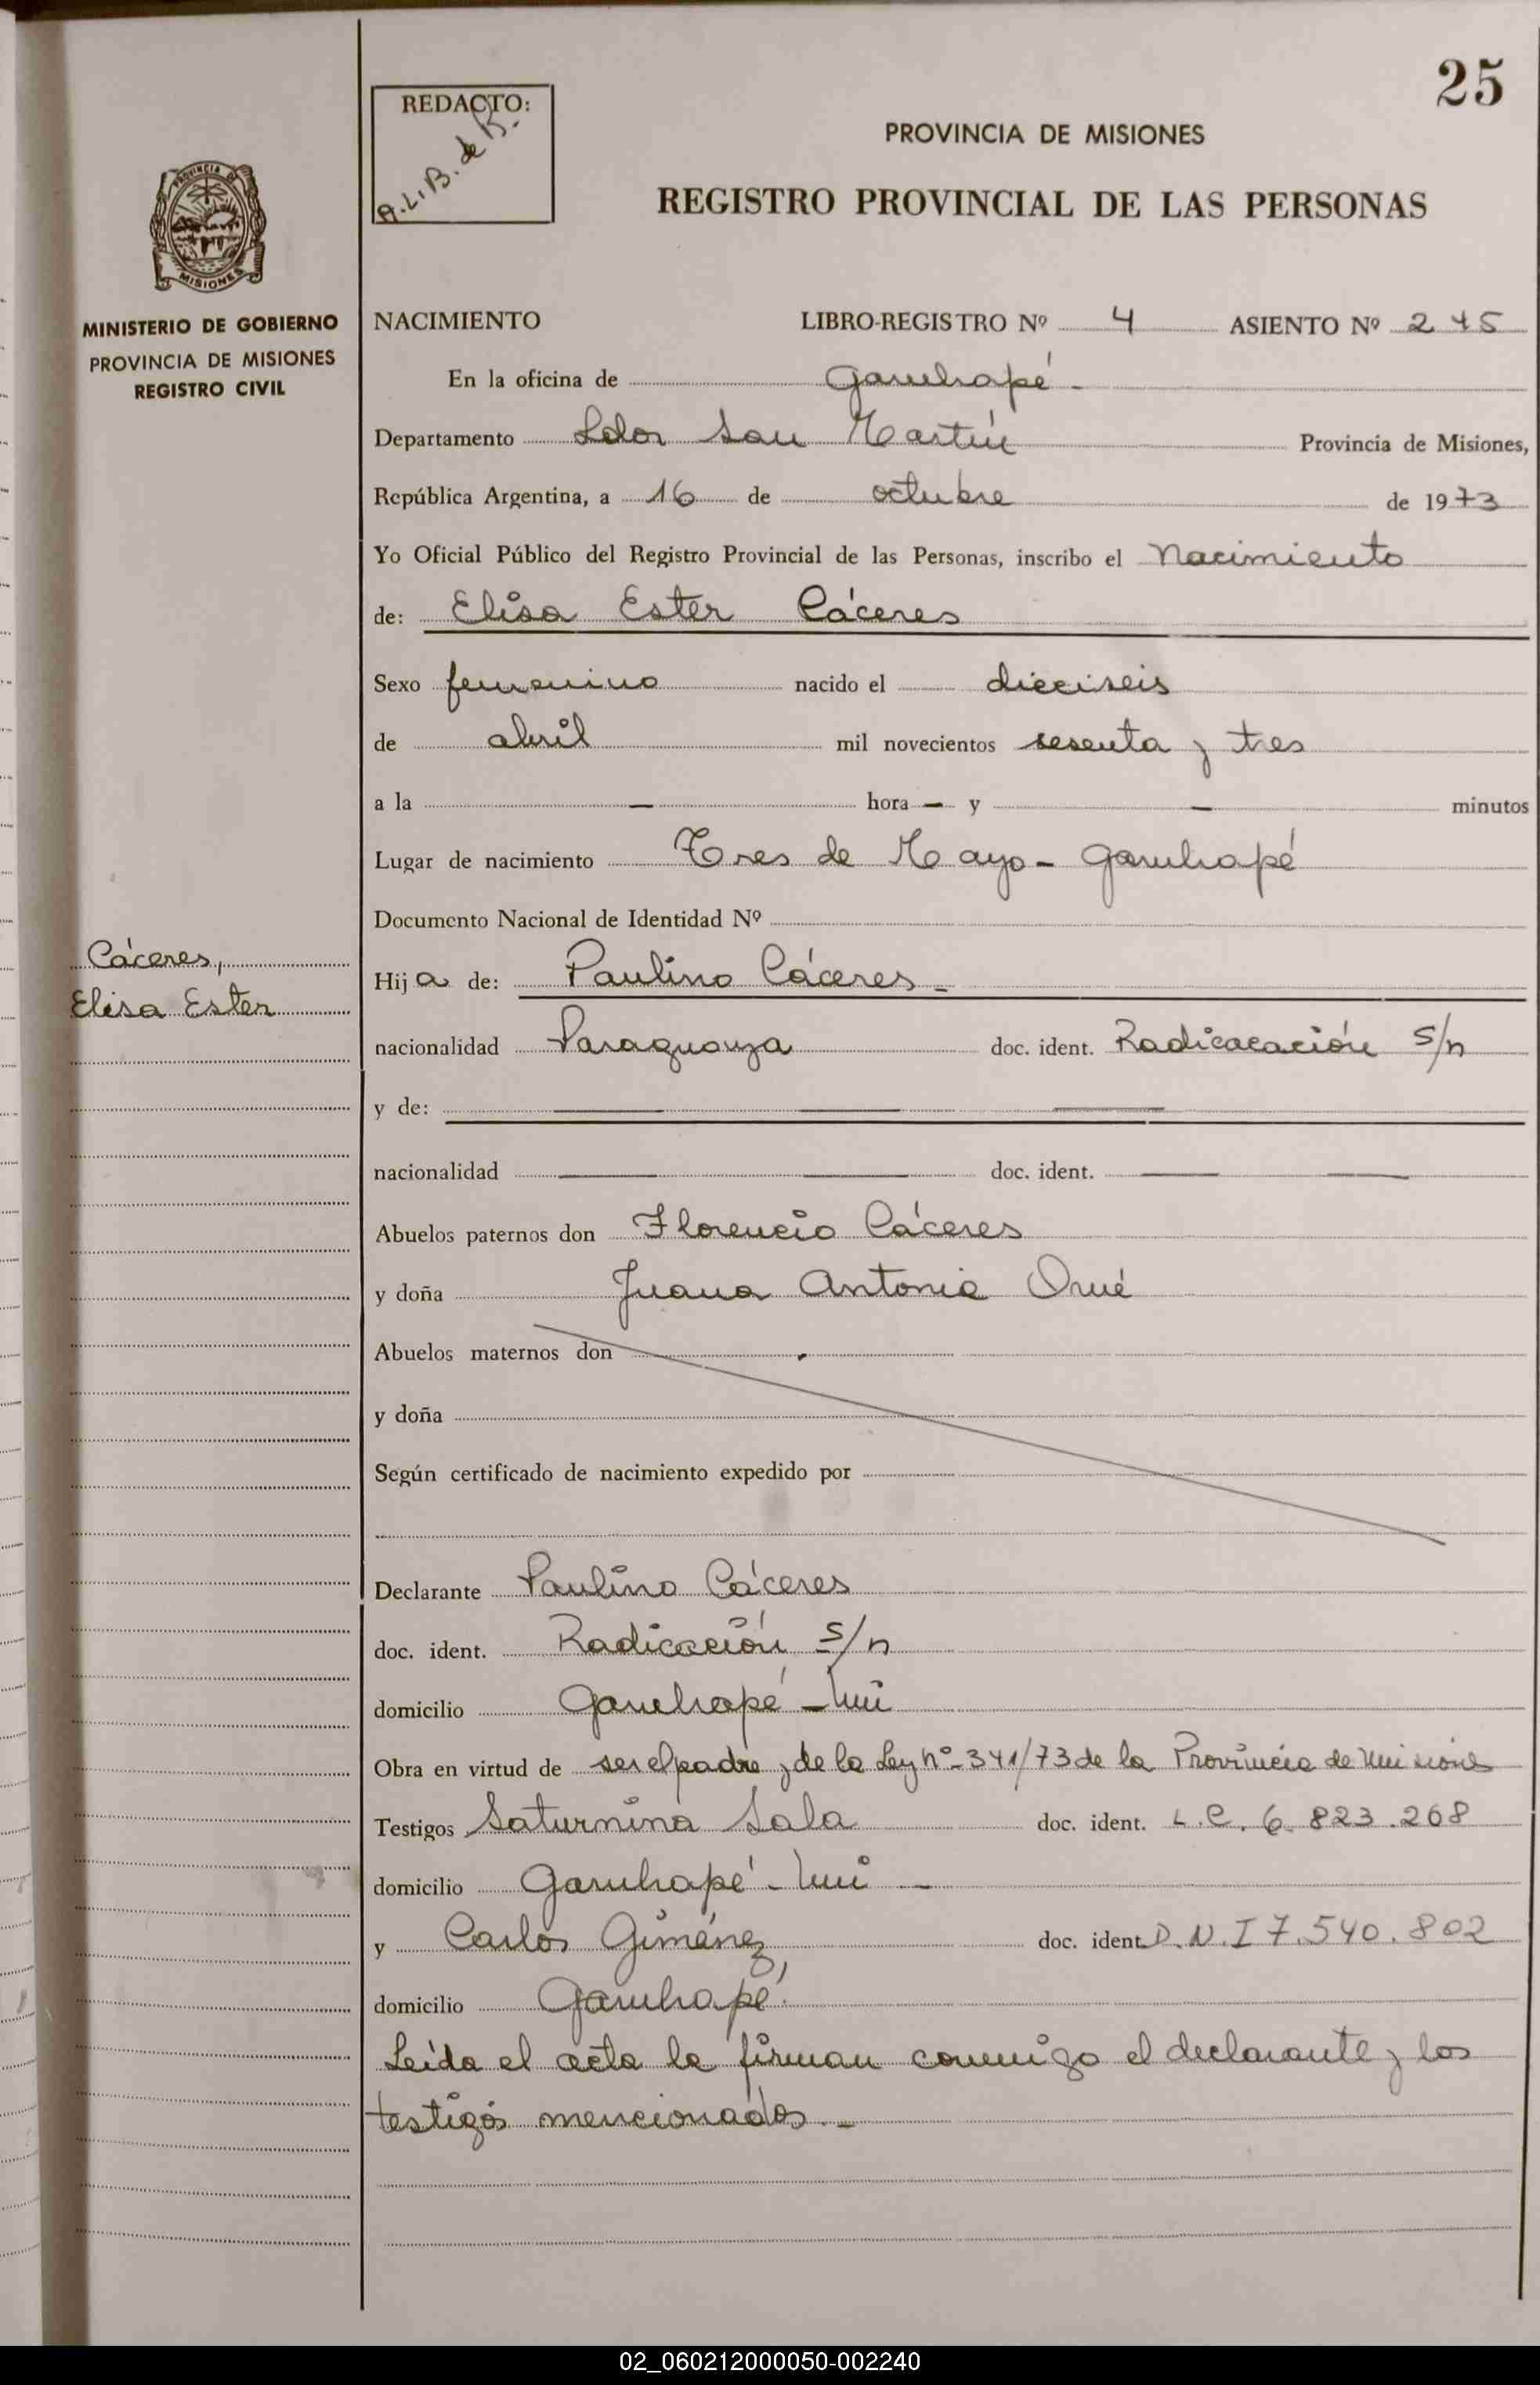 25
REDACTO:
A.L.B. de B.
PROVINCIA DE MISIONES
REGISTRO PROVINCIAL DE LAS PERSONAS
PROVINCIA DE
MISIONES
MINISTERIO DE GOBIERNO
PROVINCIA DE MISIONES
REGISTRO CIVIL
NACIMIENTO LIBRO-REGISTRO Nº 4 ASIENTO Nº 245
En la oficina de Garuhapé -
Departamento Ldor San Martín Provincia de Misiones,
República Argentina, a 16 de octubre de 1973
Yo Oficial Público del Registro Provincial de las Personas, inscribo el Nacimiento
de: Elisa Ester Cáceres
Sexo femenino nacido el dieciseis
de abril mil novecientos sesenta y tres
a la — hora — y — minutos
Lugar de nacimiento Tres de Mayo - Garuhapé
Documento Nacional de Identidad Nº
Cáceres,
Elisa Ester
Hija de: Paulino Cáceres -
nacionalidad Paraguaya doc. ident. Radicacación S/n
y de: — — —
nacionalidad — — doc. ident. — —
Abuelos paternos don Florencio Cáceres
y doña Juana Antonia Orué
Abuelos maternos don
y doña
Según certificado de nacimiento expedido por
Declarante Paulino Cáceres
doc. ident. Radicación S/n
domicilio Garuhapé - Mi
Obra en virtud de ser el padre y de la Ley nº - 341/73 de la Provincia de Misiones
Testigos Saturnina Sala doc. ident. L.C. 6.823.268
domicilio Garuhapé - Mi -
y Carlos Giménez, doc. ident. D.N.I 7.540.802
domicilio Garuhapé.
Leída el acta la firman conmigo el declarante y los
testigos mencionados. -
02_060212000050-002240